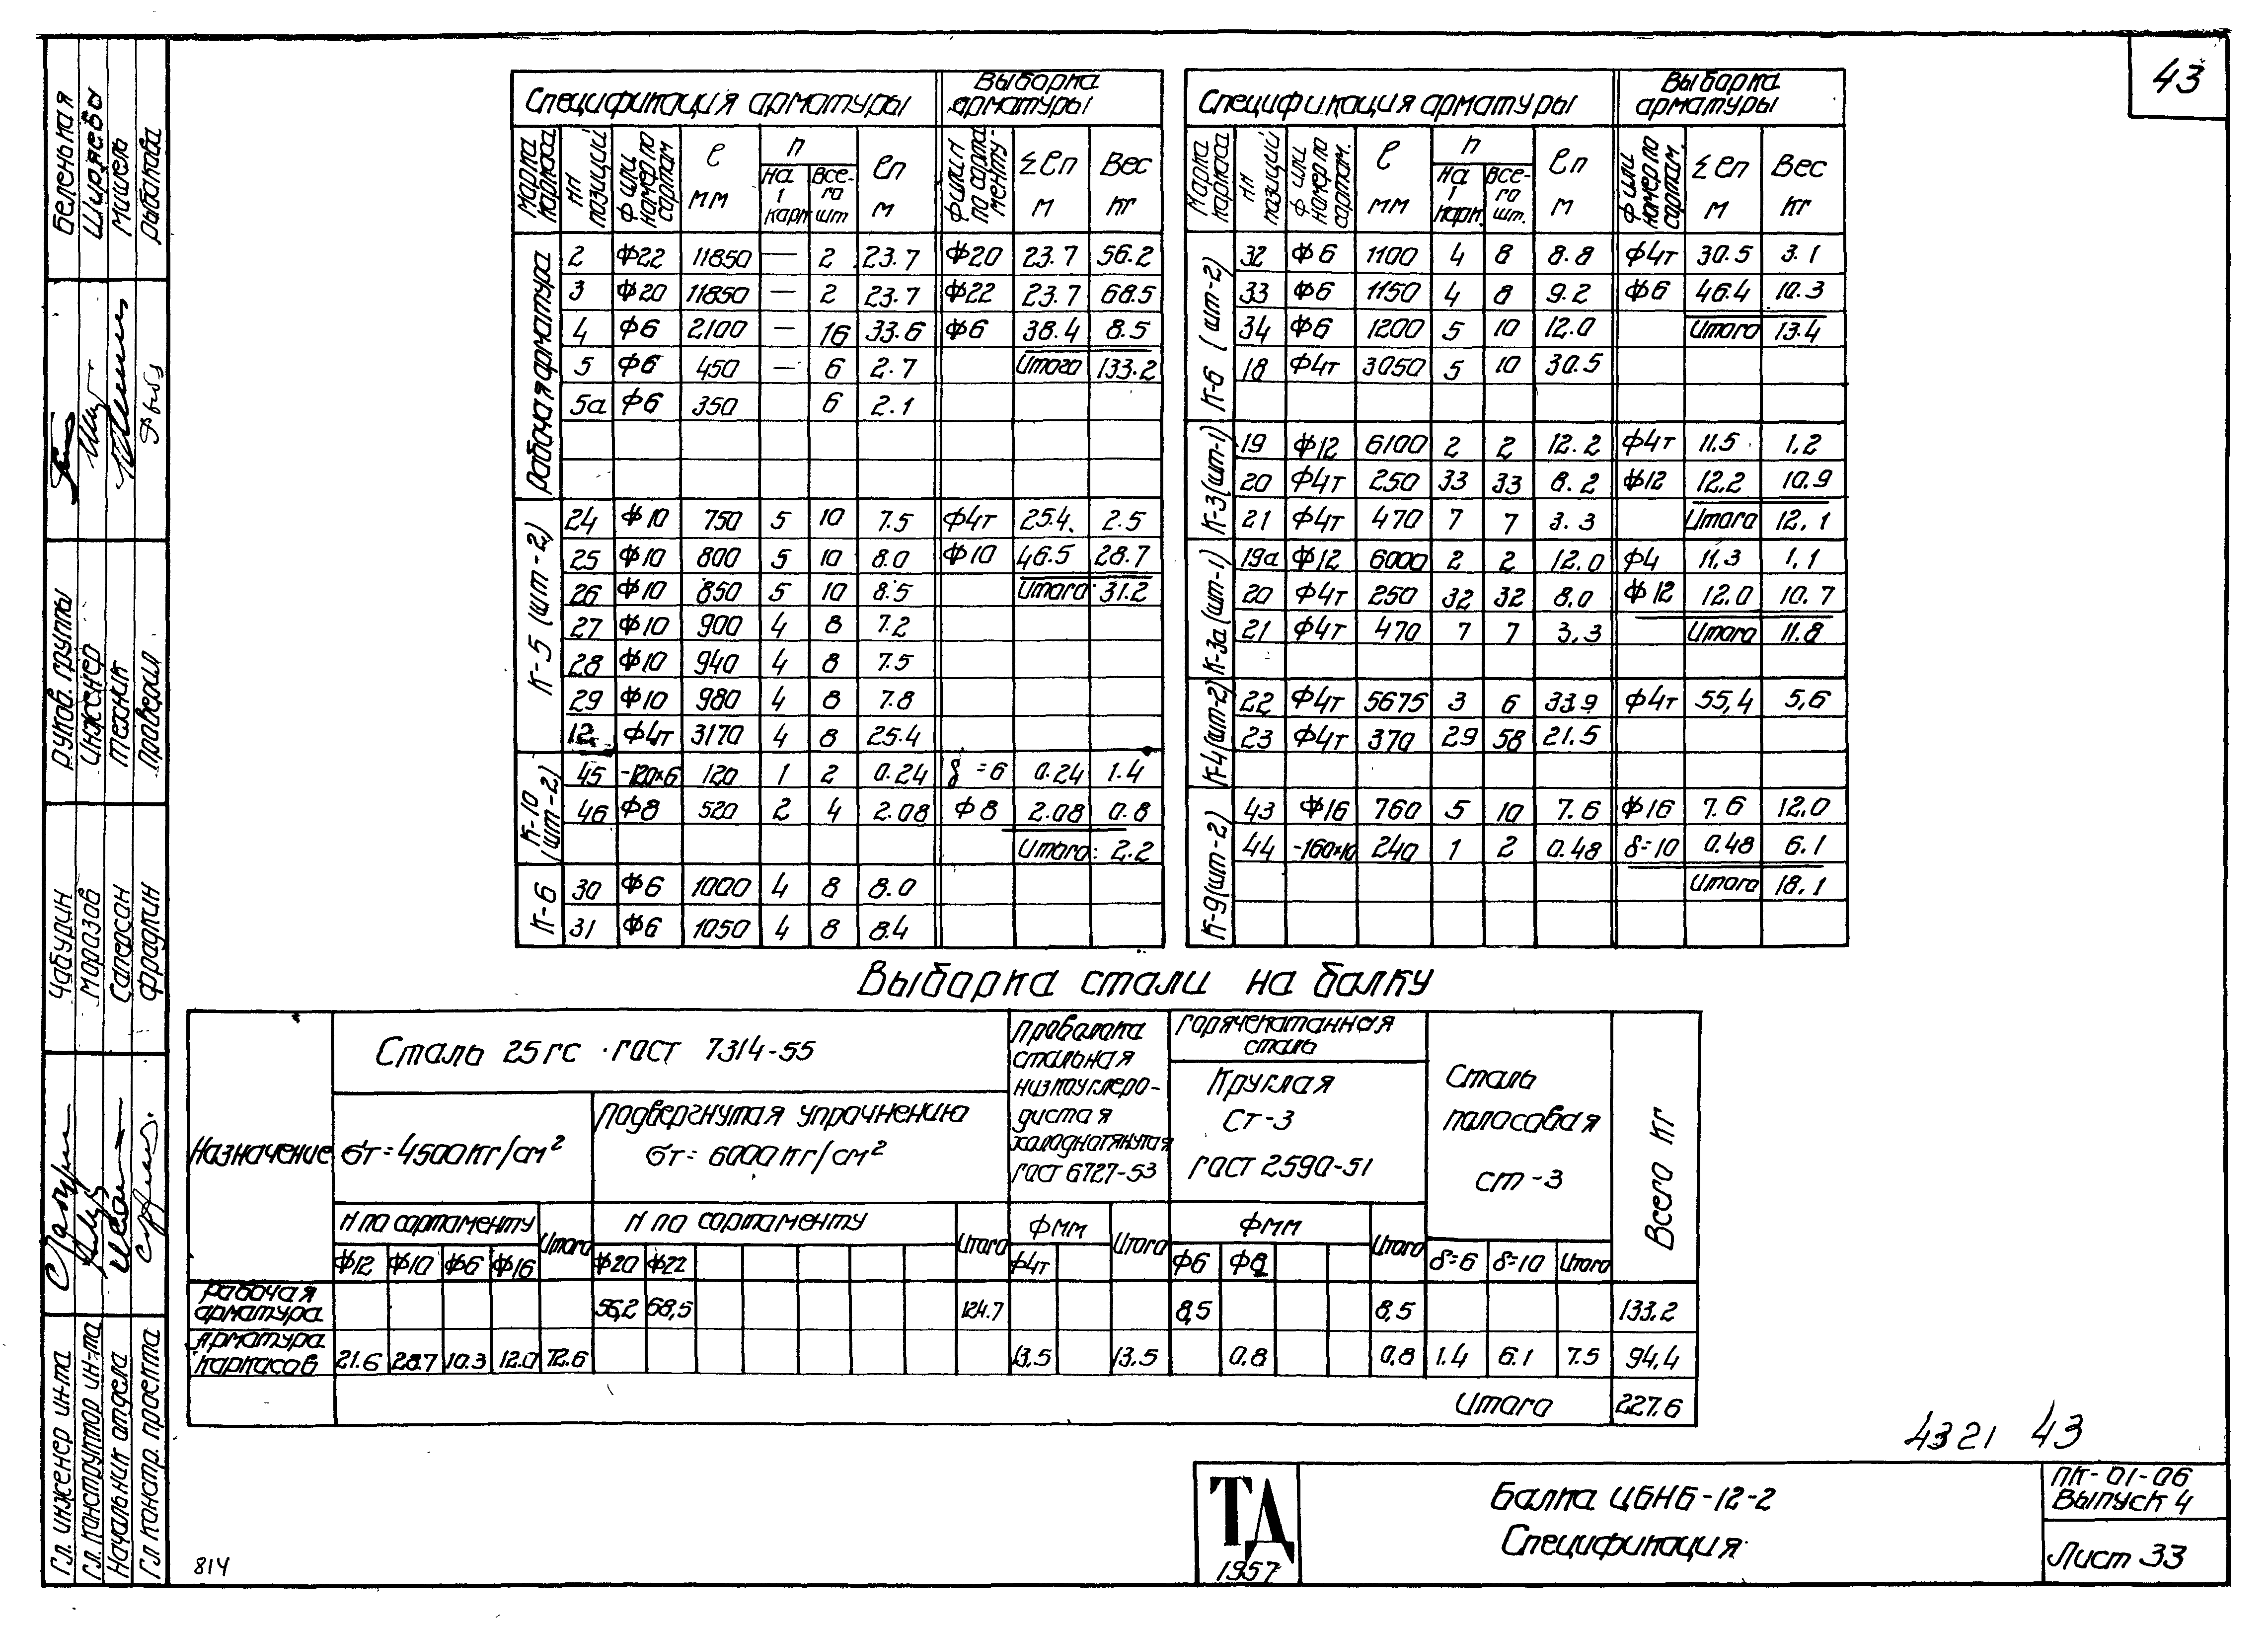 43
Спецификация арматуры
Выборка арматуры
Марка каркаса
нн позиций
Ф или номер по сортам
ℓ мм
n
на 1 карк
всего шт
ℓn м
Ф или н по сорта менту-
Σℓn м
Вес кг
Рабочая арматура
2 Ф22 11850 — 2 23.7 Ф20 23.7 56.2
3 Ф20 11850 — 2 23.7 Ф22 23.7 68.5
4 Ф6 2100 — 16 33.6 Ф6 38.4 8.5
5 Ф6 450 — 6 2.7 Итого 133.2
5а Ф6 350 6 2.1
К-5 (шт-2)
24 Ф10 750 5 10 7.5 Ф4т 25.4. 2.5
25 Ф10 800 5 10 8.0 Ф10 46.5 28.7
26 Ф10 850 5 10 8.5 Итого 31.2
27 Ф10 900 4 8 7.2
28 Ф10 940 4 8 7.5
29 Ф10 980 4 8 7.8
12 Ф4т 3170 4 8 25.4
К-10 (шт-2)
45 -120×6 120 1 2 0.24 δ=6 0.24 1.4
46 Ф8 520 2 4 2.08 Ф8 2.08 0.8
Итого: 2.2
К-6
30 Ф6 1000 4 8 8.0
31 Ф6 1050 4 8 8.4
Спецификация арматуры
Выборка арматуры
Марка каркаса
нн позиций
Ф или номер по сортам.
ℓ мм
n
на 1 карк.
всего шт.
ℓn м
Ф или номер по сортам.
Σℓn м
Вес кг
К-6 (шт-2)
32 Ф6 1100 4 8 8.8 Ф4т 30.5 3.1
33 Ф6 1150 4 8 9.2 Ф6 46.4 10.3
34 Ф6 1200 5 10 12.0 Итого 13.4
18 Ф4т 3050 5 10 30.5
К-3(шт-1)
19 Ф12 6100 2 2 12.2 Ф4т 11.5 1.2
20 Ф4т 250 33 33 8.2 Ф12 12.2 10.9
21 Ф4т 470 7 7 3.3 Итого 12.1
К-3а(шт-1)
19а Ф12 6000 2 2 12.0 Ф4 11.3 1.1
20 Ф4т 250 32 32 8.0 Ф12 12.0 10.7
21 Ф4т 470 7 7 3.3 Итого 11.8
К-4(шт-2)
22 Ф4т 5675 3 6 33.9 Ф4т 55,4 5,6
23 Ф4т 370 29 58 21.5
К-9(шт-2)
43 Ф16 760 5 10 7.6 Ф16 7.6 12.0
44 -160×10 240 1 2 0.48 δ=10 0.48 6.1
Итого 18.1
Выборка стали на балку
Назначение
Сталь 25гс ГОСТ 7314-55
σт=4500кг/см²
Подвергнутая упрочнению
σт=6000кг/см²
Проволока
стальная
низкоуглеро-
дистая
холоднотянутая
ГОСТ 6727-53
Горячекатанная
сталь
Круглая
Ст-3
ГОСТ 2590-51
Сталь
полосовая
ст-3
Всего кг
N по сортаменту
Итого
N по сортаменту
Итого
Фмм
Итого
Фмм
Итого
Ф12 Ф10 Ф6 Ф16 Ф20 Ф22 Ф4т Ф6 Ф8 δ=6 δ=10 Итого
Рабочая арматура 56,2 68,5 124.7 8,5 8,5 133.2
Арматура каркасов 21.6 28.7 10.3 12.0 72.6 13.5 13.5 0.8 0.8 1.4 6.1 7.5 94.4
Итого 227.6
4321 43
ТД
1957
Балка ЦБНБ-12-2
Спецификация
ПК-01-06
Выпуск 4
Лист 33
814
Беленькая
Ширяева
Мишель
Рыбакова
Руков. группы
Инженер
Техник
Проверил
Чабурин
Морозов
Саперсон
Фрадкин
Гл. инженер ин-та
Гл. конструктор ин-та
Начальник отдела
Гл констр. проекта